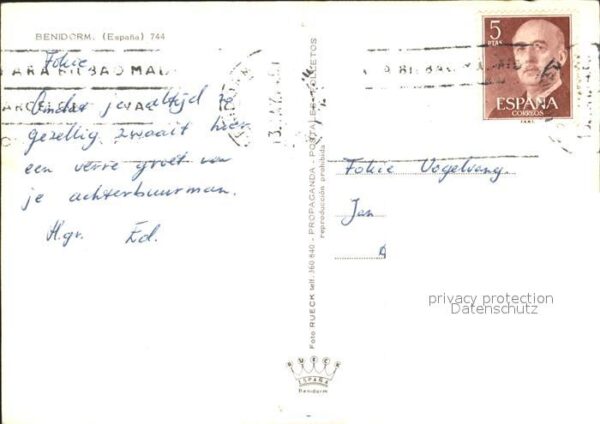 BENIDORM. (España) 744
Fokie
Omdat je altijd zo
gezellig zwaait hier
een verre groet van
je achterbuurman.
Hgr. Ed.
PARA BILBAO MAD
BARCELE
5
PTAS
ESPAÑA
CORREOS
F.N.M.T.
Fokie Vogelvang.
Jan
Foto RUECK telf. 360 640 - PROPAGANDA - POSTALES
reproducción prohibida
RUECK
ESPAÑA
Benidorm
privacy protection
Datenschutz